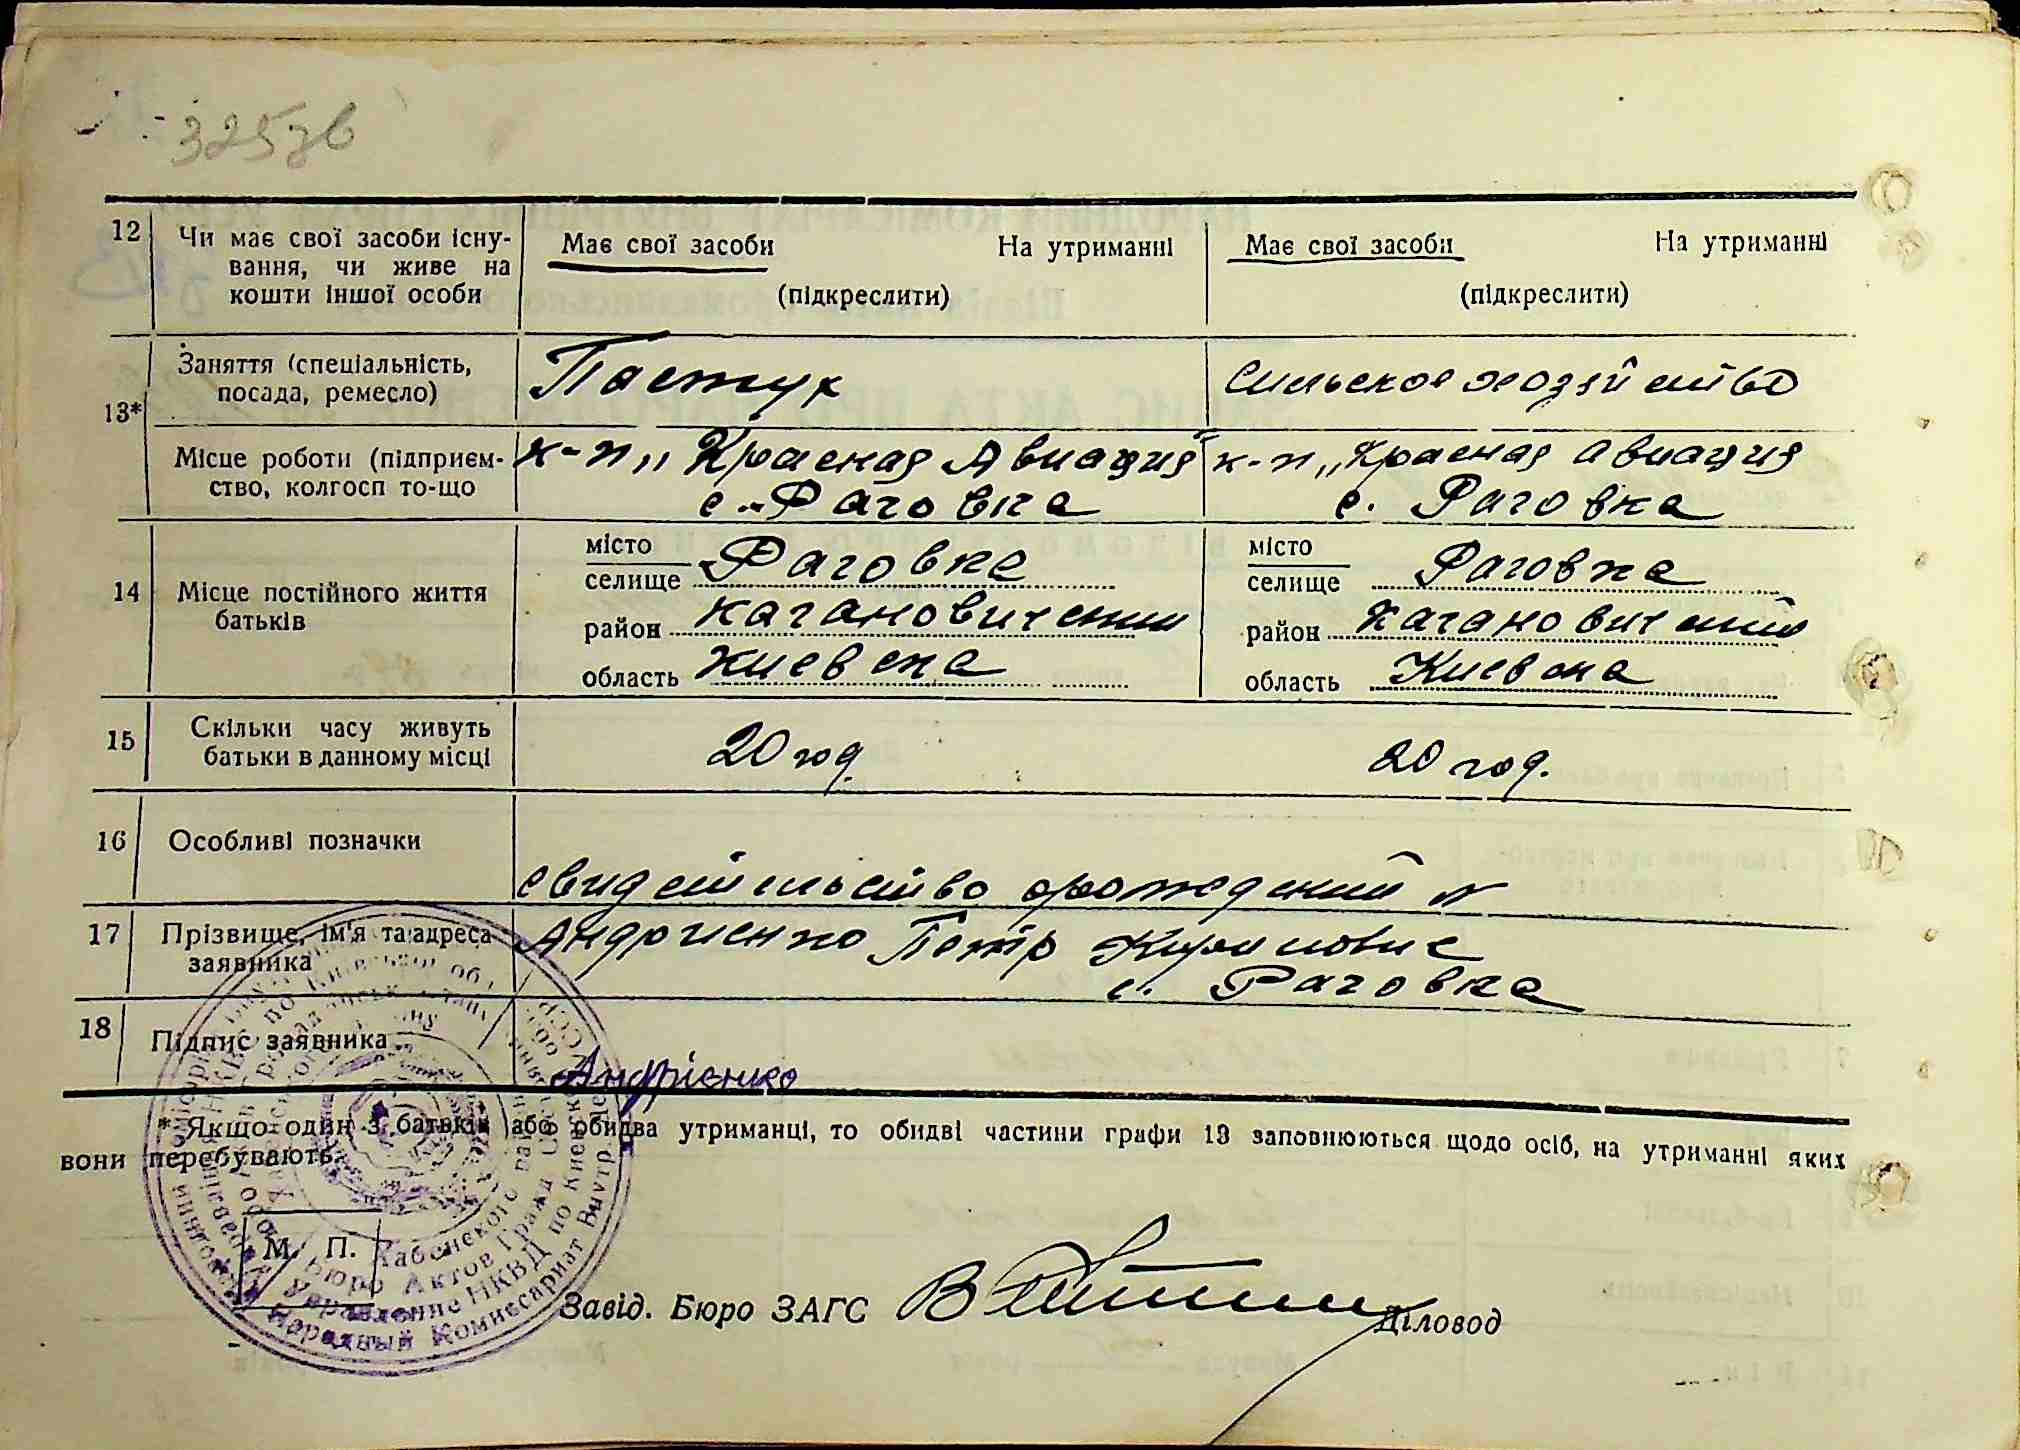 3257в
12 Чи має свої засоби існу-
вання, чи живе на
кошти іншої особи
Має свої засоби На утриманні
(підкреслити)
Має свої засоби На утриманні
(підкреслити)
13*
Заняття (спеціальність,
посада, ремесло)
Пастух
сильское хозяйство
Місце роботи (підприєм-
ство, колгосп то-що
к-п „Красная Авиация"
с. Раговка
к-п „Красная авиация
с. Раговка
14 Місце постійного життя
батьків
місто
селище Раговка
район Кагановичский
область Киевска
місто
селище Раговка
район Кагановичский
область Киевска
15 Скільки часу живуть
батьки в данному місці
20 год
20 год.
16 Особливі позначки
свидетельство рождений №
17 Прізвище, ім'я та адреса
заявника
Андриенко Петр
с. Раговка
18 Підпис заявника
Андрієнко
* Якщо один з батьків або обидва утриманці, то обидві частини графи 13 заповнюються щодо осіб, на утриманні яких
вони перебувають.
М. П.
Хабенского
Бюро Актов Гражд
Управление НКВД по Киевск
Народный Комиссариат Внутр
Завід. Бюро ЗАГС
Діловод